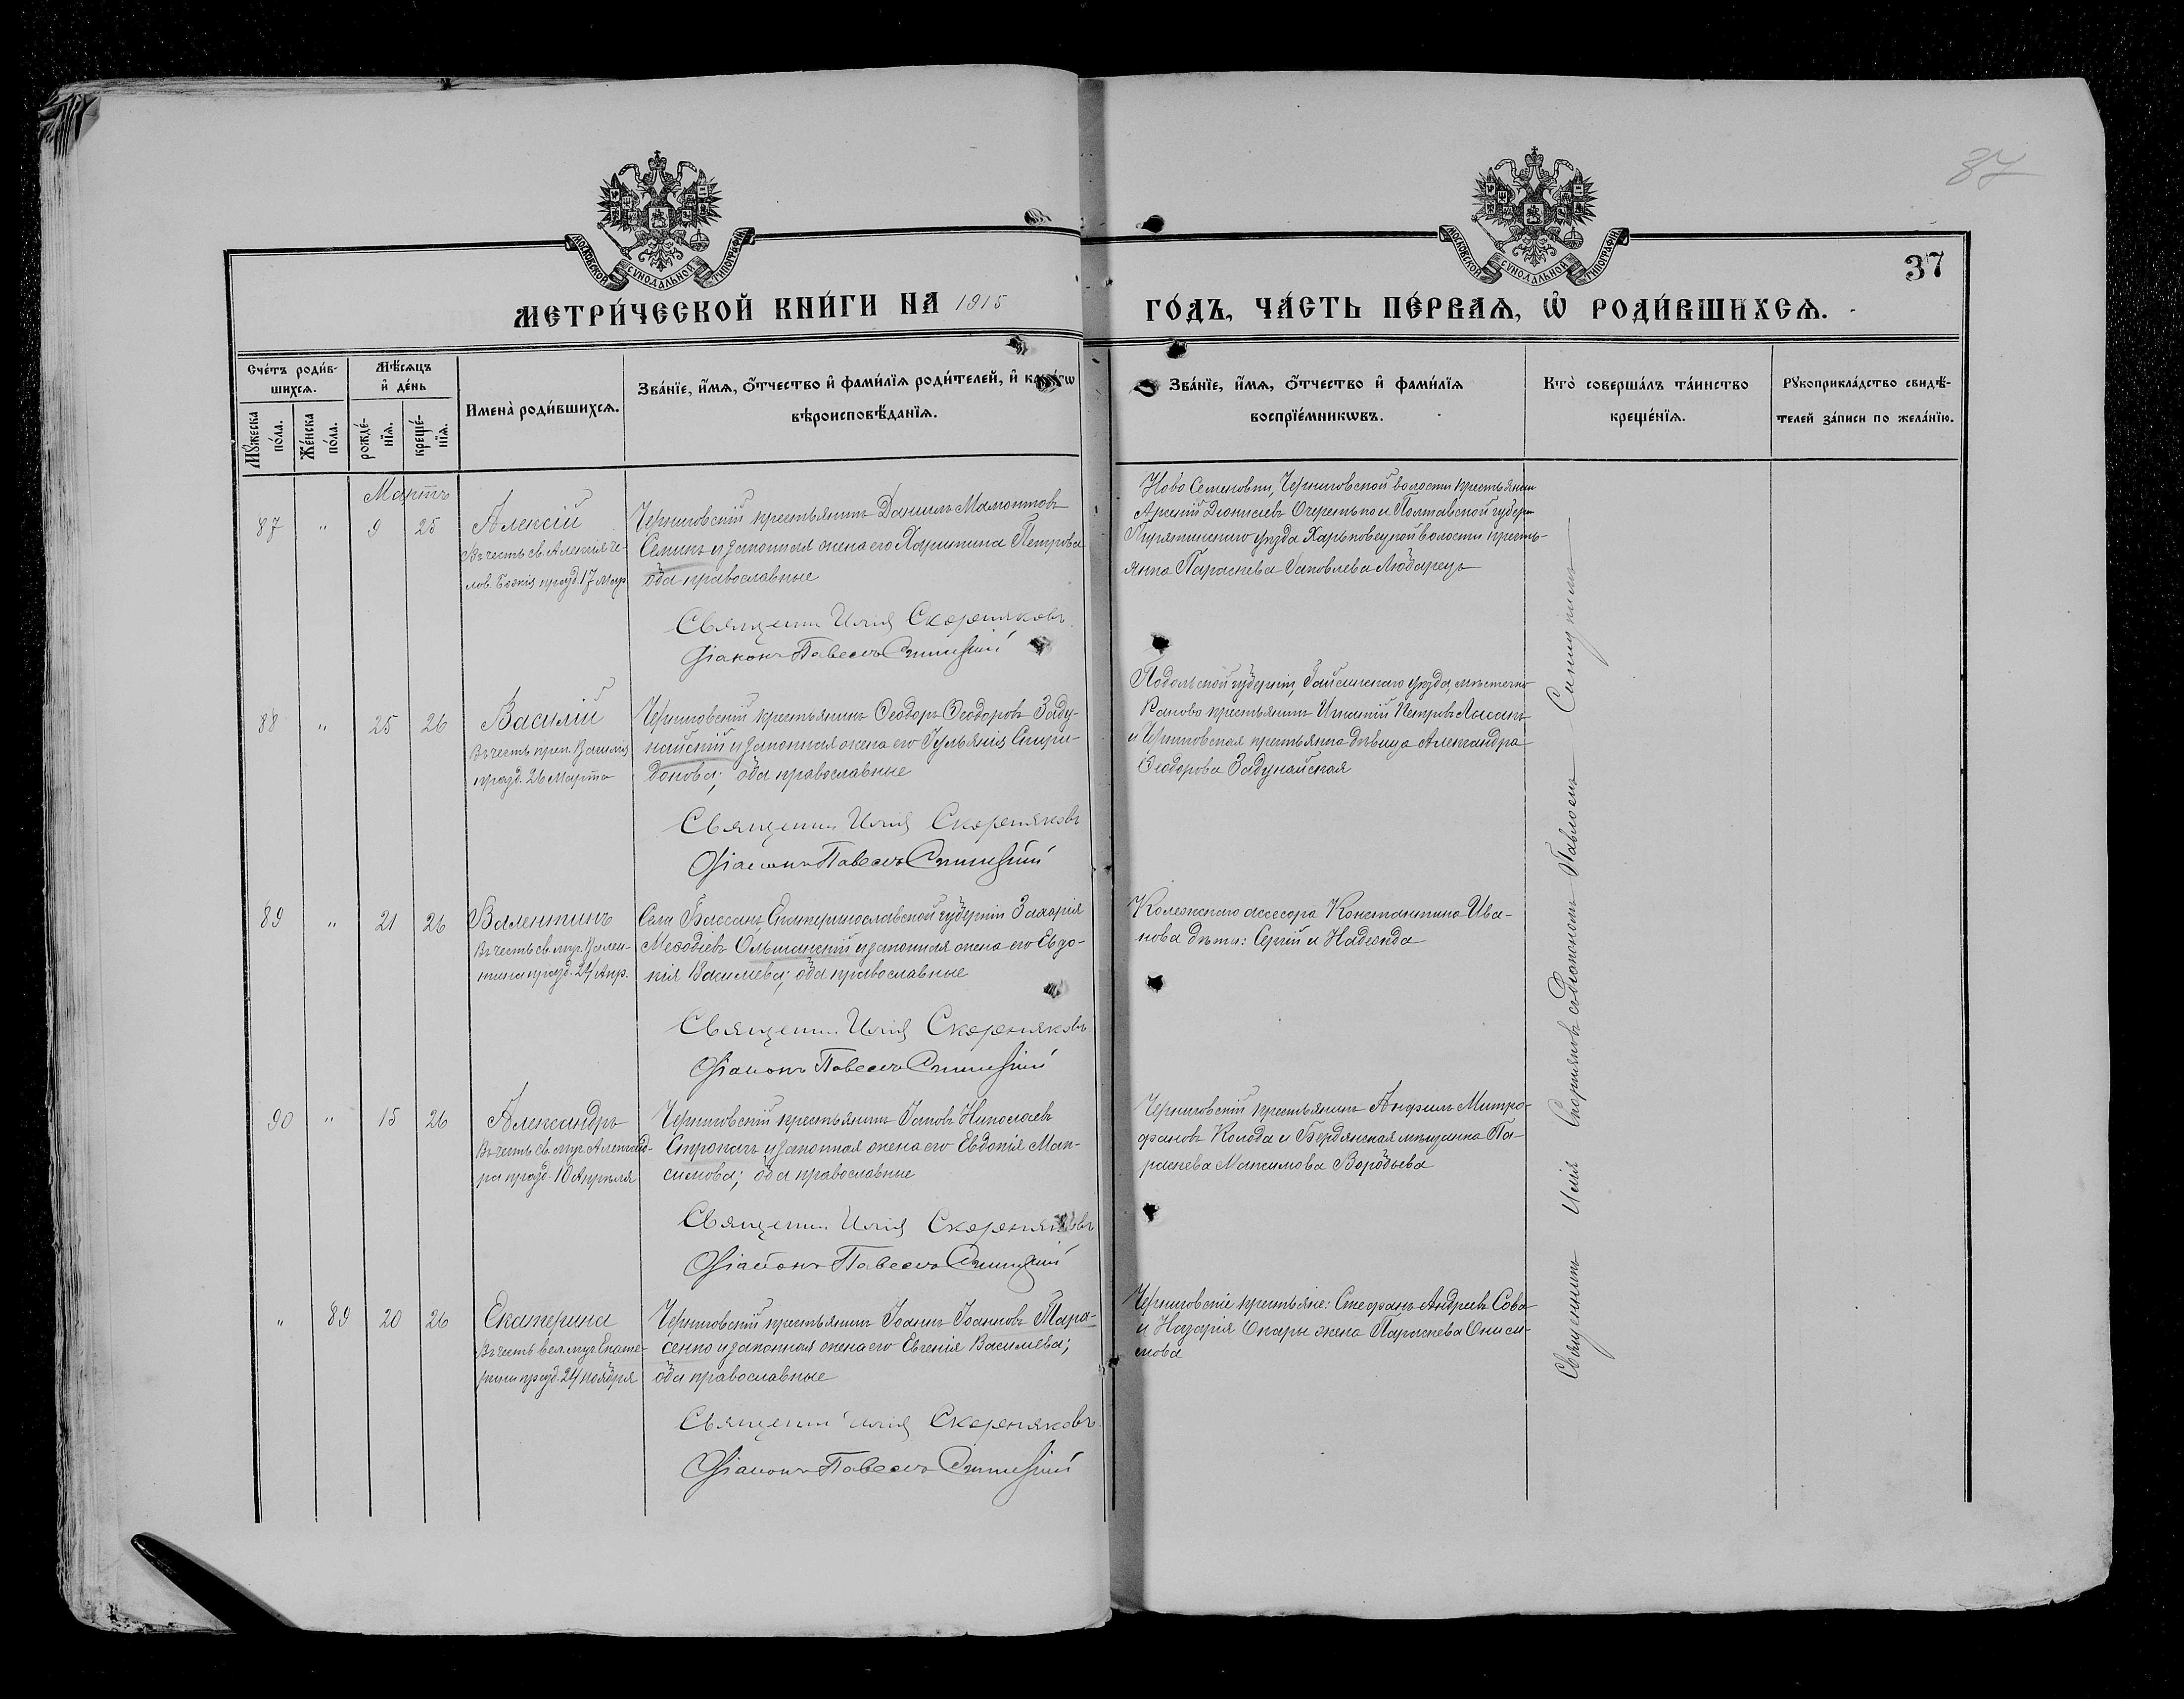 37
37
МОСКОВСКОЙ СѴНОДАЛЬНОЙ ТИПОГРАФІИ
МОСКОВСКОЙ СѴНОДАЛЬНОЙ ТИПОГРАФІИ
МЕТРИ́ЧЕСКОЙ КНИ́ГИ НА 1915
ГО́ДЪ, ЧА́СТЬ ПЕ́РВАѦ, Ѡ҆ РОДИ́ВШИХСѦ.
Сче́тъ роди́в-
шихсѧ.
Мꙋ́жеска по́ла.
Же́нска по́ла.
Мѣ́сѧцъ
и҆ де́нь
рожде́-
нїѧ.
креще́-
нїѧ.
Имена̀ роди́вшихсѧ.
Зва́нїе, и҆́мѧ, ѻ҆́тчество и҆ фами́лїѧ роди́телей, и҆ како́гѡ
вѣроисповѣ́данїѧ.
Зва́нїе, и҆́мѧ, ѻ҆́тчество и҆ фами́лїѧ
воспрїе́мникѡвъ.
Кто̀ соверша́лъ та́инство
креще́нїѧ.
Рꙋкоприкла́дство свидѣ́-
телей за́писи по жела́нїю.
Мартъ
87 " 9 25
Алексій
Въ честь св. Алексія че-
лов. Божія празд. 17 Мар.
Черниговскій крестьянинъ Даніилъ Мамонтовъ
Семинъ и законная жена его Харитина Петрова
оба православные
Священн. Илія Скорняковъ
Діаконъ Павелъ
Ново Семеновки, Черниговской волости крестьянин
Арсеній Діонисіевъ Очеретько и Полтавской губерн
Пирятинскаго уѣзда Харьковецкой волости кресть-
янка Параскева Іаковлева Любарецъ
88 " 25 26
Василій
Въ честь преп. Василія
празд. 26 Марта
Черниговскій крестьянинъ Ѳеодоръ Ѳеодоровъ Заду-
найскій и законная жена его Іуліанія Спири-
донова; оба православные
Священн. Илія Скорняковъ
Діаконъ Павелъ
Подольской губерніи, Гайсинскаго уѣзда, мѣстечко
крестьянинъ Игнатій Петровъ
и Черниговская крестьянка дѣвица Александра
Ѳеодорова Задунайская
89 " 21 26
Валентинъ
Въ честь св. муч. Вален-
тина празд. 24 Апр.
Села Басань, Екатеринославской губерніи Захарія
Меѳодіевъ Ольшанскій и законная жена его Евдо-
кія Василіева; оба православные
Священн. Илія Скорняковъ
Діаконъ Павелъ
Колежскаго ассесора Константина Ива-
нова дѣти: Сергій и Надежда
90 " 15 26
Александръ
Въ честь св. муч. Александ-
ра празд. 10 Апрѣля
Черниговскій крестьянинъ Іаковъ Николаевъ
Строкачъ и законная жена его Евдокія Мак-
симова; оба православные
Священн. Илія Скорняковъ
Діаконъ Павелъ
Черниговскій крестьянинъ Анфилъ Митро-
фановъ Колода и Бердянская мѣщанка Па-
раскева Максимова Воробьева
" 89 20 26
Екатерина
Въ честь вел. муч. Екате-
рины празд. 24 ноября
Черниговскій крестьянинъ Іоаннъ Іоанновъ Тара-
сенко и законная жена его Евгенія Василіева;
оба православные
Священн Илія Скорняковъ
Діаконъ Павелъ
Черниговскіе крестьяне: Стефанъ Андреевъ Сова
и Назарія Опары жена Параскева Ониси-
мова
Священникъ Илія Скорняковъ съ Діакономъ Павломъ